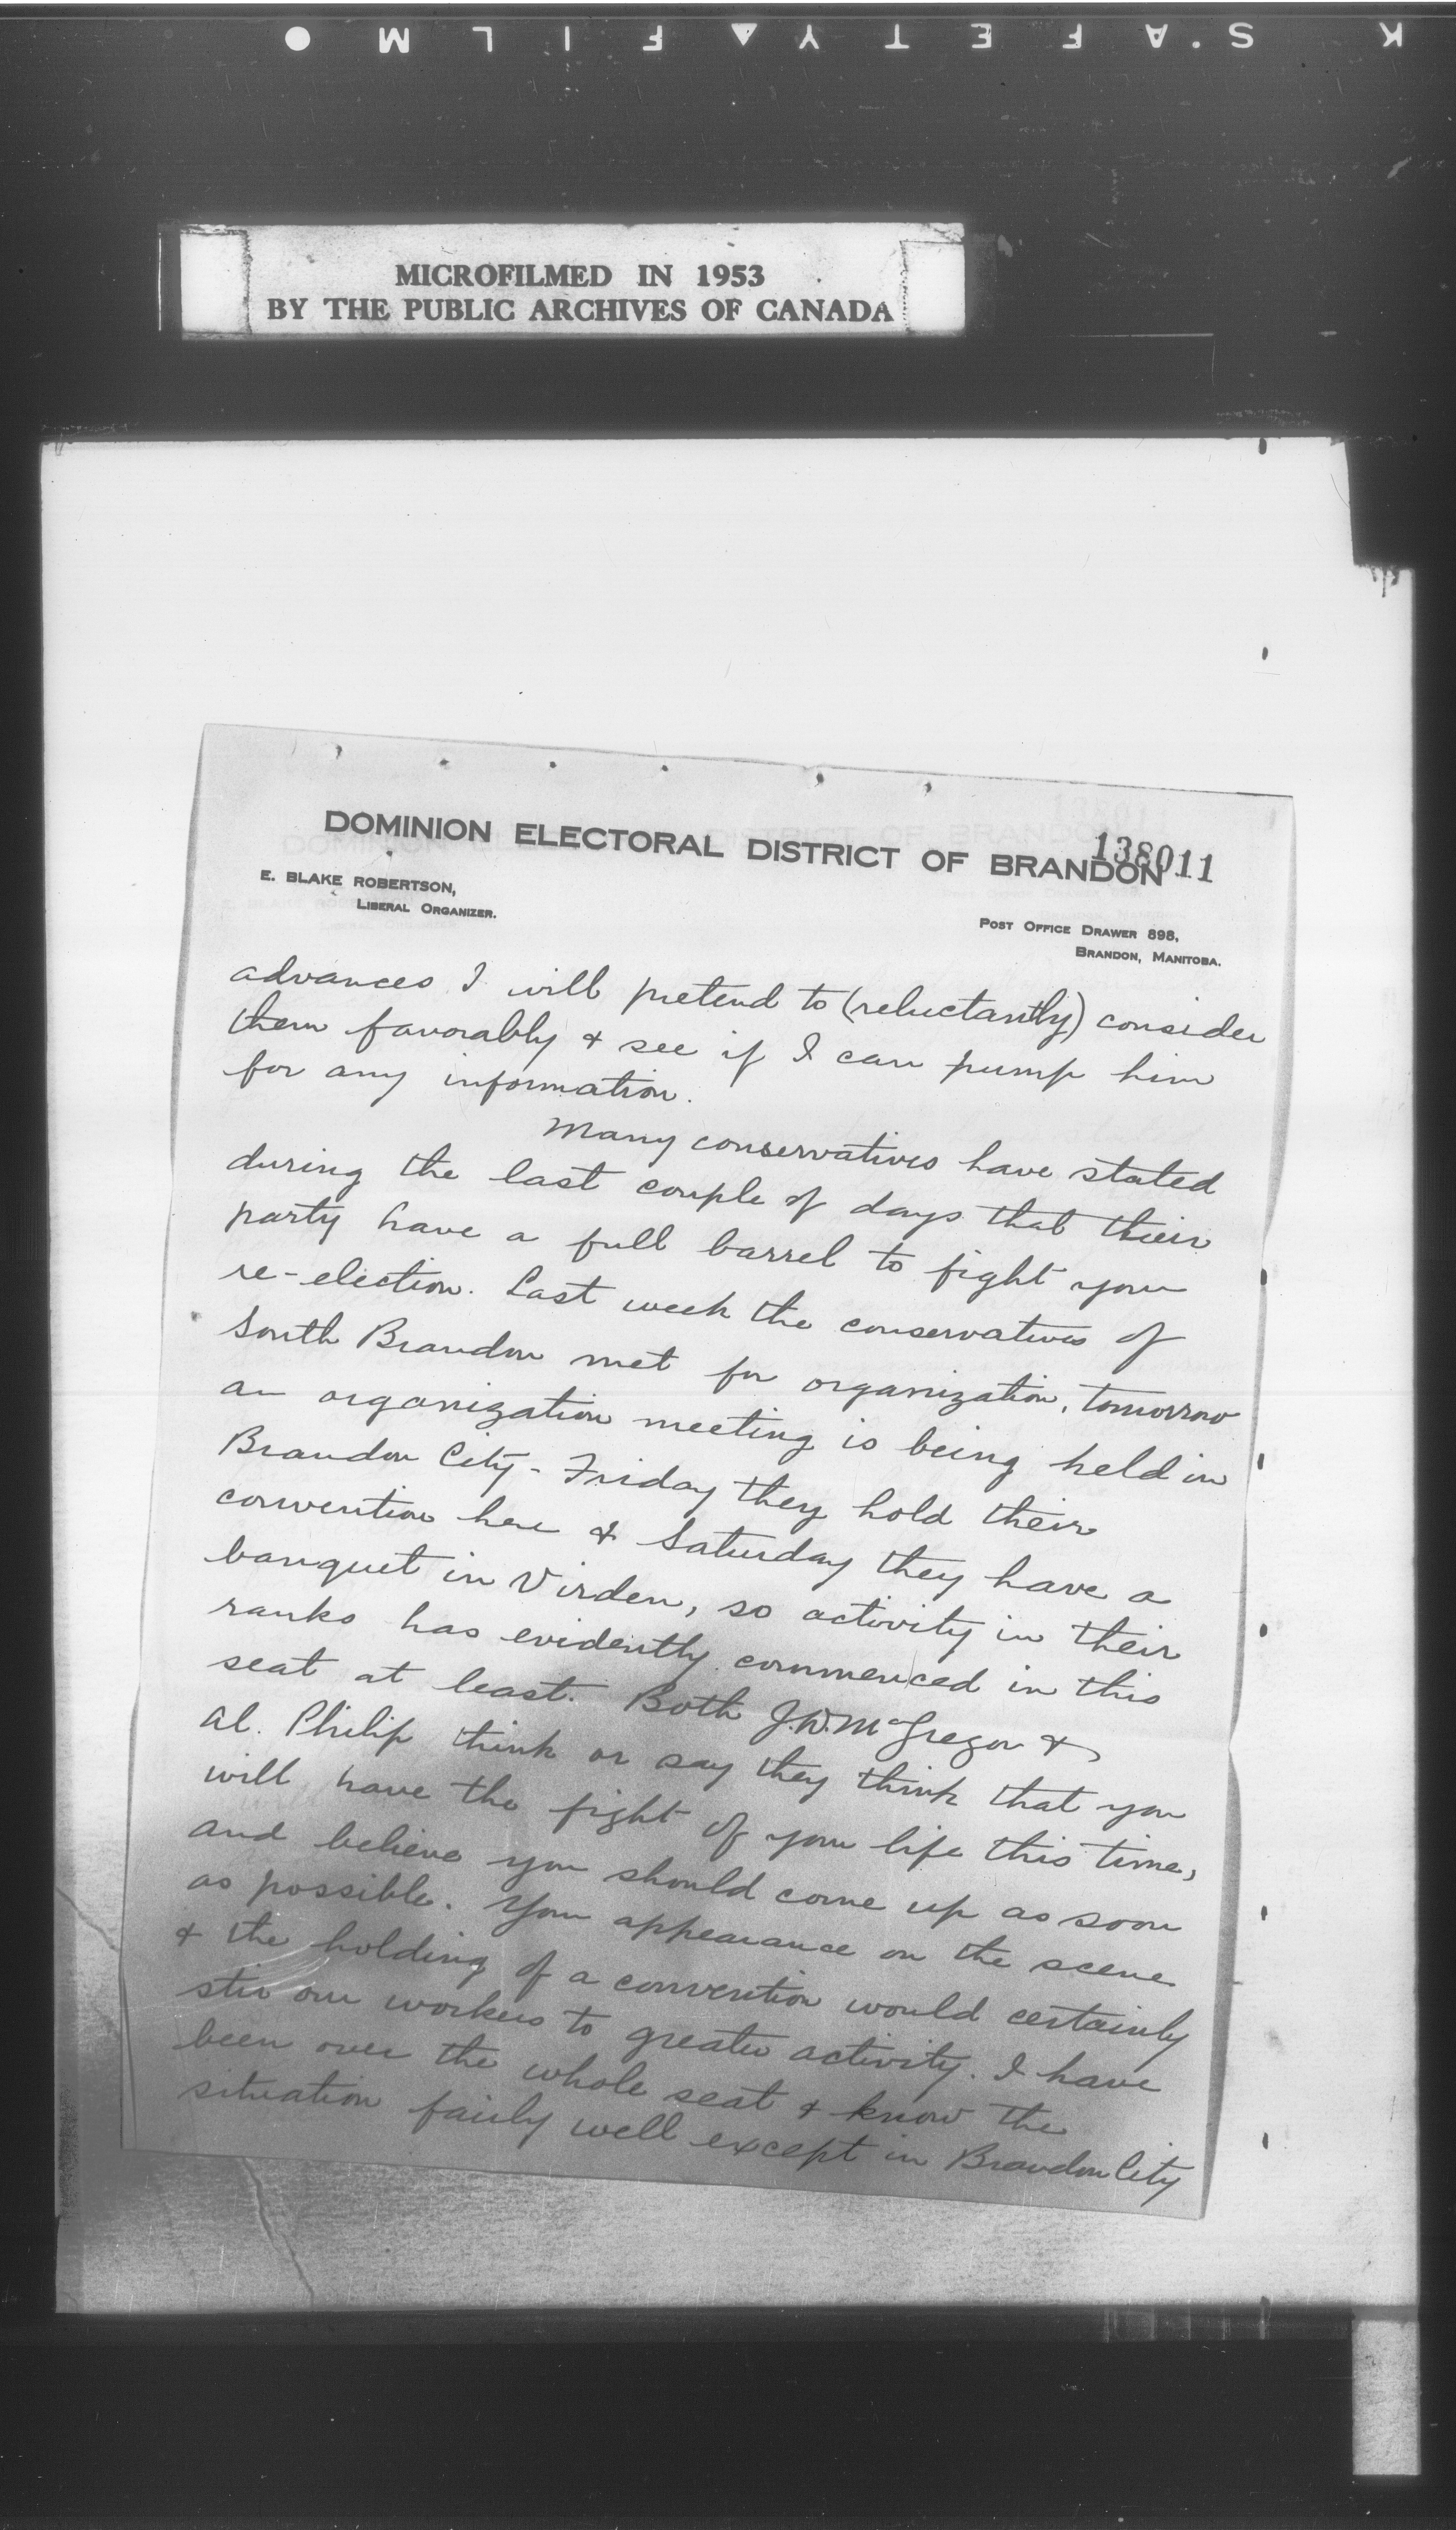 K S'AFETY▲FILM ●
MICROFILMED IN 1953
BY THE PUBLIC ARCHIVES OF CANADA
DOMINION ELECTORAL DISTRICT OF BRANDON
138011
E. BLAKE ROBERTSON,
LIBERAL ORGANIZER.
POST OFFICE DRAWER 898,
BRANDON, MANITOBA.
advances I will pretend to (reluctantly) consider
them favorably & see if I can pump him
for any information.
Many conservatives have stated
during the last couple of days that their
party have a full barrel to fight your
re-election. Last week the conservatives of
South Brandon met for organization, tomorrow
an organization meeting is being held in
Brandon City - Friday they hold their
convention here & Saturday they have a
banquet in Virden, so activity in their
ranks has evidently commenced in this
seat at least. Both J.D. McGregor &
Al. Philip think or say they think that you
will have the fight of your life this time,
and believe you should come up as soon
as possible. Your appearance on the scene
& the holding of a convention would certainly
stir our workers to greater activity. I have
been over the whole seat & know the
situation fairly well except in Brandon City